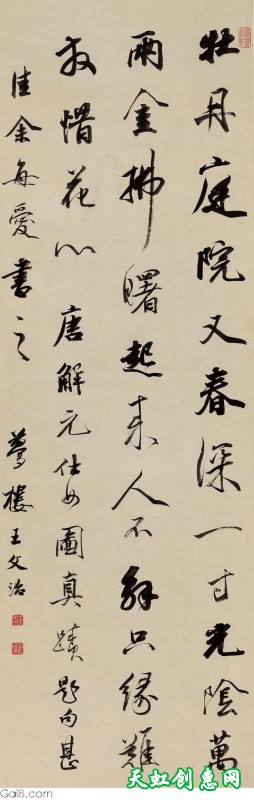 牡丹庭院又春深一寸光陰萬
兩金拂曙起来人不解只緣難
放惜花心唐解元仕女圖真蹟題句甚
佳余每愛書之
夢樓王文治
Gal8.com
天虹创惠网